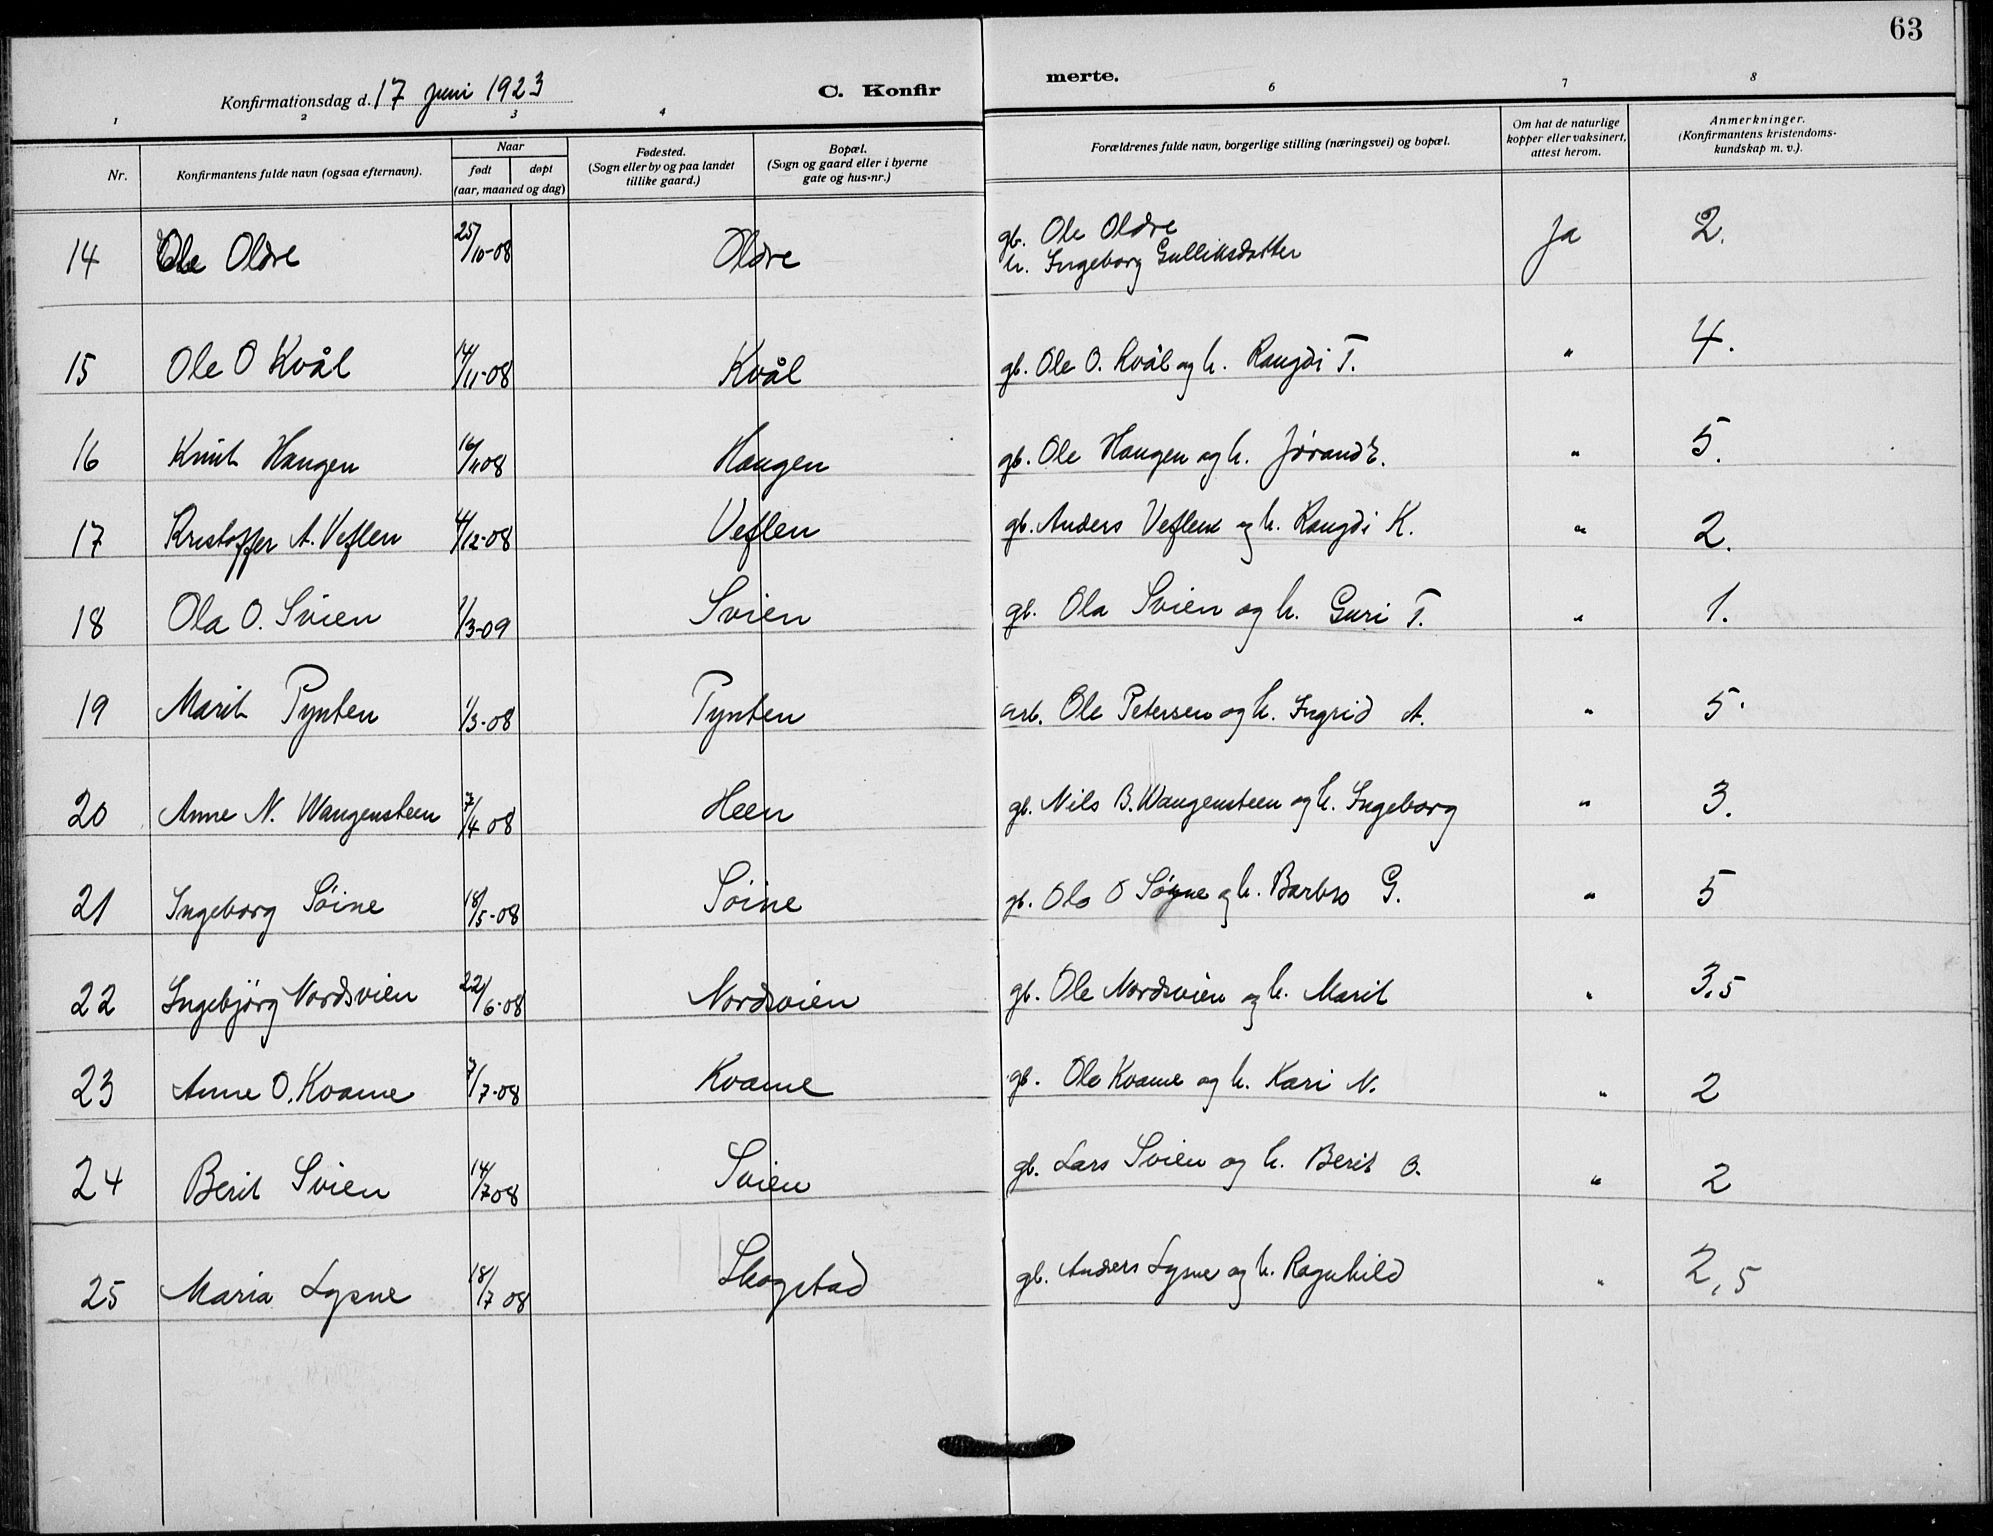 63
Konfirmationsdag d. 17 juni 1923 C. Konfir merte.
1 2 3 4 6 7 8
Nr. Konfirmantens fulde navn (ogsaa efternavn). Naar født døpt (aar, maaned og dag) Fødested. (Sogn eller by og paa landet tillike gaard.) Bopæl. (Sogn og gaard eller i byerne gate og hus-nr.) Forældrenes fulde navn, borgerlige stilling (næringsvei) og bopæl. Om hat de naturlige kopper eller vaksinert, attest herom. Anmerkninger. (Konfirmantens kristendoms-kundskap m. v.).
14 Ole Oldre 25/10-08 Oldre gb. Ole Oldre Ja 2.
h. Ingeborg Gulliksdatter
15 Ole O Kvål 14/11-08 Kvål gb. Ole O. Kvål og h. Rangdi T. " 4.
16 Knut Haugen 16/11 08 Haugen gb. Ole Haugen og h. Jørand E. " 5.
17 Kristoffer A. Veflen 4/12-08 Veflen gb. Anders Veflen og h. Rangdi K. " 2.
18 Ola O. Svien 1/3-09 Svien gb. Ola Svien og h. Guri T. " 1.
19 Marit Pynten 1/3-08 Pynten arb. Ole Petersen og h. Ingrid A. " 5.
20 Anne N. Wangensteen 7/4 08 Heen gb. Nils B. Wangensteen og h. Ingeborg " 3.
21 Ingeborg Søine 18/5-08 Søine gb. Ola O Søyne og h. Barbro G. " 5
22 Ingebjørg Nordsvien 22/6-08 Nordsvien gb. Ole Nordsvien og h. Marit " 3,5
23 Anne O. Kvame 7/7-08 Kvame gb. Ole Kvame og h. Kari N. " 2
24 Berit Svien 14/7 08 Svien gb. Lars Svien og h. Berit O. " 2
25 Maria Lysne 18/7 08 Skogstad gb. Anders Lysne og h. Ragnhild " 2,5